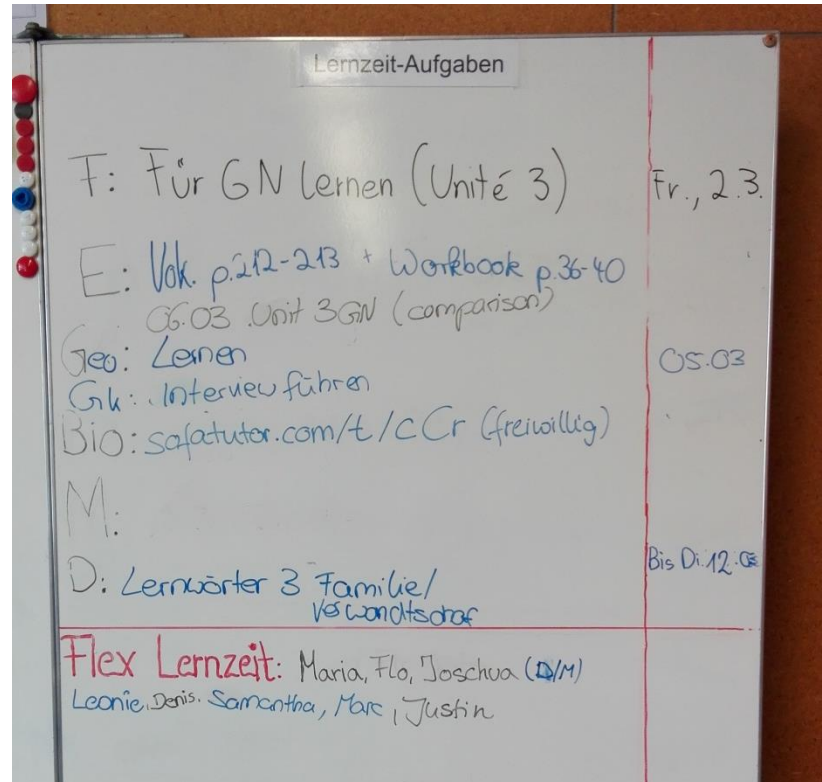 Lernzeit-Aufgaben
F: Für GN lernen (Unité 3) Fr., 2.3.
E: Vok. p.212-213 + Workbook p.36-40
06.03 Unit 3 GN (comparison)
Geo: Lernen 05.03
Gk: Interview führen
Bio: sofatutor.com/t/cCr (freiwillig)
M:
D: Lernwörter 3 Familie/ Bis Di. 12.03
Verwandtschaf
Flex Lernzeit: Maria, Flo, Joschua (D/M)
Leonie, Denis, Samantha, Marc, Justin